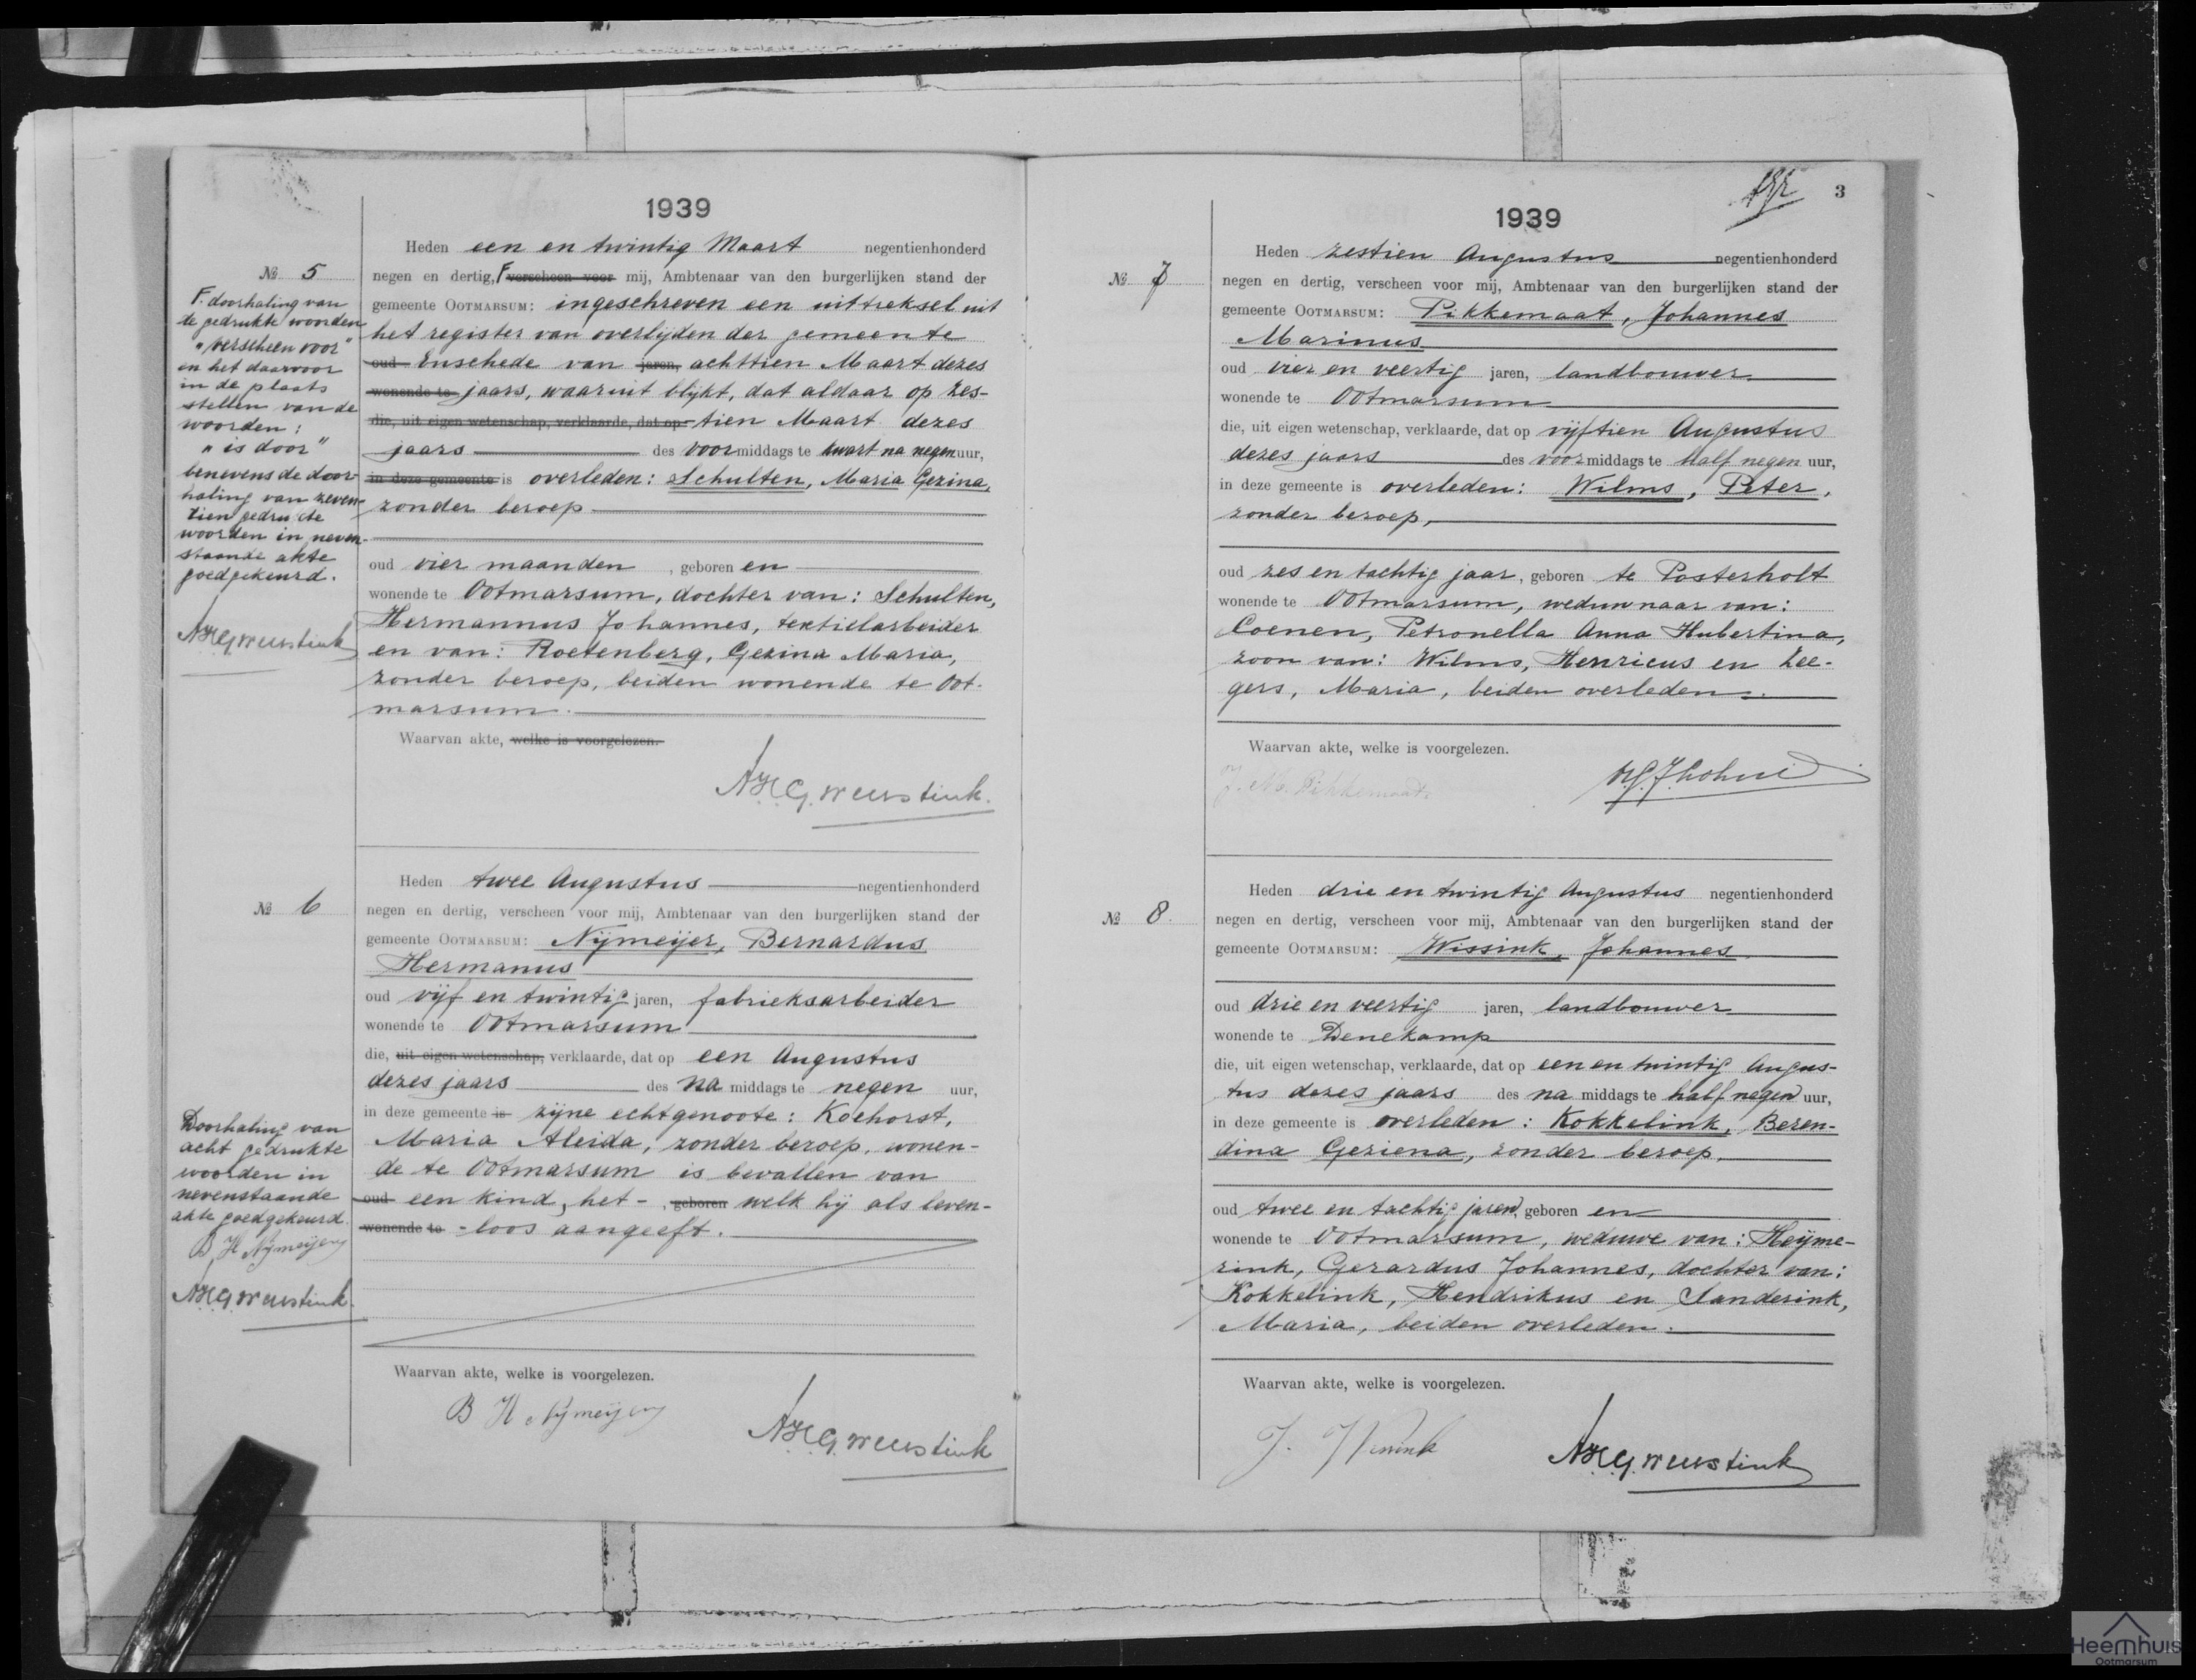 1939
Heden een en twintig Maart negentienhonderd
№ 5
negen en dertig, F verscheen voor mij, Ambtenaar van den burgerlijken stand der
gemeente OOTMARSUM: ingeschreven een uittreksel uit
het register van overlijden der gemeente
oud Enschede van jaren, achttien Maart dezes
wonende te jaars, waaruit blijkt, dat aldaar op zes-
die, uit eigen wetenschap, verklaarde, dat op tien Maart dezes
jaars des voormiddags te kwart na negen uur,
in deze gemeente is overleden: Schulten, Maria Gezina,
zonder beroep
oud vier maanden, geboren en
wonende te Ootmarsum, dochter van: Schulten,
Hermannus Johannes, textielarbeider
en van: Roetenberg, Gezina Maria,
zonder beroep, beiden wonende te Oot-
marsum.
Waarvan akte, welke is voorgelezen.
AHG Weustink.
F. doorhaling van
de gedrukte woorden
"verscheen voor"
en het daarvoor
in de plaats
stellen van de
woorden:
"is door"
benevens de door-
haling van zeven-
tien gedrukte
woorden in neven-
staande akte
goedgekeurd.
AHG Weustink
Heden twee Augustus negentienhonderd
№ 6
negen en dertig, verscheen voor mij, Ambtenaar van den burgerlijken stand der
gemeente OOTMARSUM: Nijmeijer, Bernardus
Hermanus
oud vijf en twintig jaren, fabrieksarbeider
wonende te Ootmarsum
die, uit eigen wetenschap, verklaarde, dat op een Augustus
dezes jaars des na middags te negen uur,
in deze gemeente is zijne echtgenoote: Koehorst,
Maria Aleida, zonder beroep, wonen-
de te Ootmarsum is bevallen van
oud een kind, het-, geboren welk hij als leven-
wonende te -loos aangeeft.
Doorhaling van
acht gedrukte
woorden in
nevenstaande
akte goedgekeurd.
B H Nijmeijer
AHG Weustink.
Waarvan akte, welke is voorgelezen.
B H Nijmeijer
AHG Weustink
3
1939
Heden zestien Augustus negentienhonderd
№ 7
negen en dertig, verscheen voor mij, Ambtenaar van den burgerlijken stand der
gemeente OOTMARSUM: Pikkemaat, Johannes
Marinus
oud vier en veertig jaren, landbouwer.
wonende te Ootmarsum
die, uit eigen wetenschap, verklaarde, dat op vijftien Augustus
dezes jaars des voormiddags te half negen uur,
in deze gemeente is overleden: Wilms, Peter,
zonder beroep,
oud zes en tachtig jaar, geboren te Posterholt
wonende te Ootmarsum, weduwnaar van:
Coenen, Petronella Anna Hubertina,
zoon van: Wilms, Henricus en Zee-
gers, Maria, beiden overleden.
Waarvan akte, welke is voorgelezen.
J. M. Pikkemaat.
Heden drie en twintig Augustus negentienhonderd
№ 8.
negen en dertig, verscheen voor mij, Ambtenaar van den burgerlijken stand der
gemeente OOTMARSUM: Wissink, Johannes
oud drie en veertig jaren, landbouwer
wonende te Denekamp
die, uit eigen wetenschap, verklaarde, dat op een en twintig Augus-
tus dezes jaars des na middags te half negen uur,
in deze gemeente is overleden: Kokkelink, Beren-
dina Geziena, zonder beroep,
oud twee en tachtig jaren, geboren en
wonende te Ootmarsum, weduwe van: Heijme-
rink, Gerardus Johannes, dochter van:
Kokkelink, Hendrikus en Sanderink,
Maria, beiden overleden.
Waarvan akte, welke is voorgelezen.
J. Wissink
AHG Weustink
Heemhuis
Ootmarsum